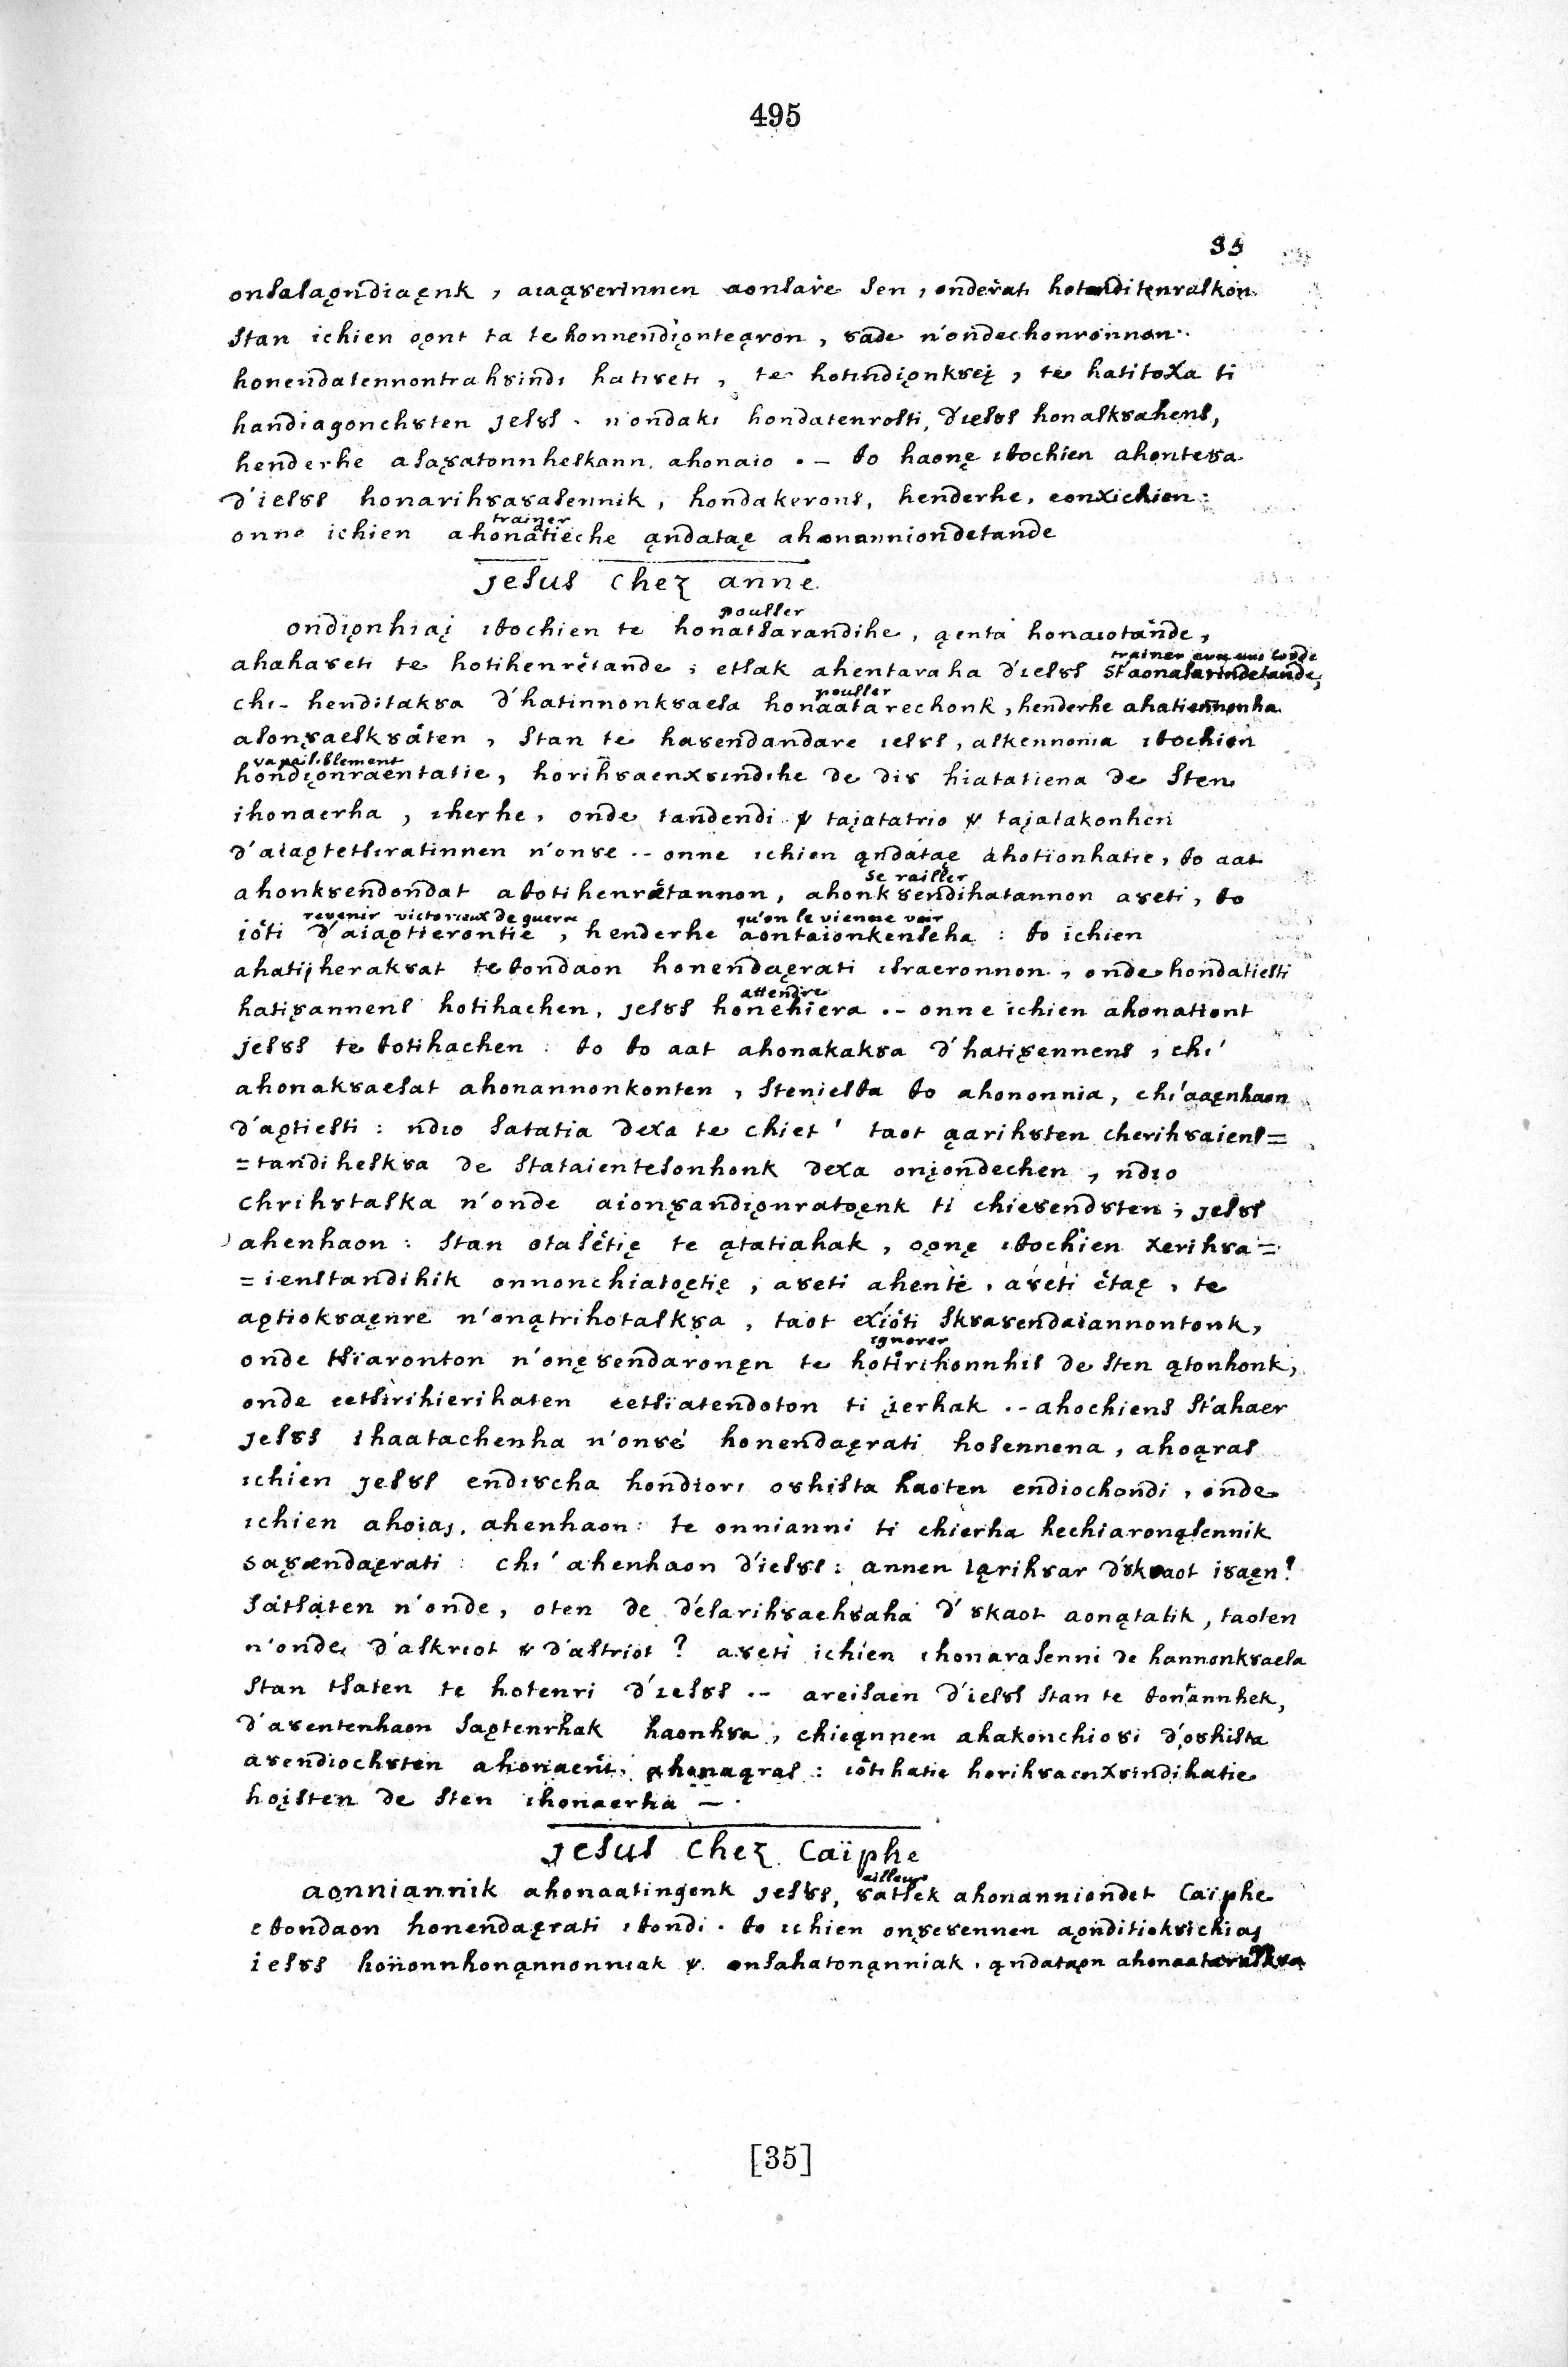 495
35
onsasaǫndiaęnk, aıaąȣerinnen aonsare sen, onderati hotanditenraskon
stan ichien oǫnt ta te honnendiǫnteąron, ȣade n'ondechonronnon.
honendatennontrahȣindı hatıȣetı, te hotındiǫnkȣeį, te hatitoxa ti
handiagonchȣten jesȣs. n'ondakı hondatenrosti, d'ıesȣs honaskȣahens,
henderhe asaȣatonnheskann. ahonaio .– ꝋo haonę ıꝋochien ahonteȣa
d'iesȣs honarihȣaȣasennik, hondakerons, henderhe, eonxichien:
trainer
onne ichien ahonatieche ąndataę ahonanniondetande
jesus chez anne
pousser
ondiǫnhıaį ıꝋochien te honatsarandihe, ąenta honaıotande,
ahahaȣeti te hotihenretande; etsak ahentaraha d'ıesȣs
trainer avec une corde
st'aonasarindetande,
pousser
chı– henditakȣa d'hatinnonkȣaesa honaatarechonk, henderhe ahatiennonha
asonȣaeskȣaten, stan te haȣendandare ıesȣs, askennonia ıꝋochien
va paisiblement
hondiǫnraentatie, horihȣaenxȣındıhe de diȣ hiatatiena de sten
ihonaerha, ıherhe, onde tandendi ȣ taįatatrio ȣ taįatakonhen
d'aıaǫtetsıratinnen n'onȣe .– onne ıchien ąndataę ahotionhatie, ꝋo aat
se railler
ahonkȣendondat aꝋotihenretannon, ahonkȣendihatannon aȣeti, ꝋo
revenir victorieux de guerre qu'on le vienne voir
ioti d'aiaǫtierontie, henderhe aontaionkenseha : ꝋo ichien
ahatijherakȣat te ꝋondaon honendaęrati ısraeronnon, onde hondatiesti
attendre
hatiȣannens hotihachen, jesȣs honehiera .– onne ichien ahonationt
jesȣs te ꝋotihachen : ꝋo ꝋo aat ahonakakȣa d'hatiȣennens, chı'
ahonakȣaesat ahonannonkonten, steniesꝋa ꝋo ahononnia, chı'aaęnhaon
d'aǫtiesti : ndıo satatia dexa te chiet' taot ąarihȣten cherihȣaiens=
=tandiheskȣa de stataientesonhonk dexa onįondechen, ndıo
chrihȣtaska n'onde aionȣandiǫnratoęnk ti chieȣendȣten; jesȣs
ahenhaon : stan otasetię te ątatiahak, oǫnę ıꝋochien xerihȣa=
=ienstandihik onnonchiatoętię, aȣeti ahente, aȣeti etaę, te
aǫtiokȣaęnre n'onątrihotaskȣa, taot exioti skȣaȣendaiannontonk,
ignorer
onde tsiaronton n'onęȣendaronęn te hotirihonnhıs de sten ątonhonk,
onde eetsirihierihaten eetsiatendoton ti įerhak .– ahochiens st'ahaer
jesȣs ıhaatachenha n'onȣe honendaęrati hosennena, ahoąras
ıchien jesȣs endıȣcha hondiorı oȣhista haoten endiochondi, onde
ıchien ahoiaȷ, ahenhaon : te onnianni ti chierha hechiaronąsennik
saȣændaęrati : chı' ahenhaon d'iesȣs: annen ıąrihȣar d'ȣkaot iȣaęn?
satsaten n'onde, oten de d'esarihȣaehȣaha d'ȣkaot aonątatik, taoten
n'onde d'askrıot ȣ d'astriot? aȣeti ichien ıhonarasenni de hannonkȣaesa
stan tsaten te hotenri d'ıesȣs .– areisaen d'iesȣs stan te ꝋonannhek,
d'aȣentenhaon saǫtenrhak haonhȣa, chieąnnen ahakonchioȣi d'oȣhista
aȣendiochȣten ahonaent, ahonaąras : ıotihatie horihȣaenxȣindihatie
hoįsten de sten ıhonaerha –.
jesus chez Caïphe
ailleurs
aonniannik ahonaatingenk jesȣs, ȣatsek ahonanniondet Caïphe
eꝋondaon honendaęrati ıꝋondi. ꝋo ıchien onȣeȣennen aǫnditiokȣichiaȷ
iesȣs honnonnhonąnnonnıak ȣ onsahatonąnniak, ąndataǫn
[35]